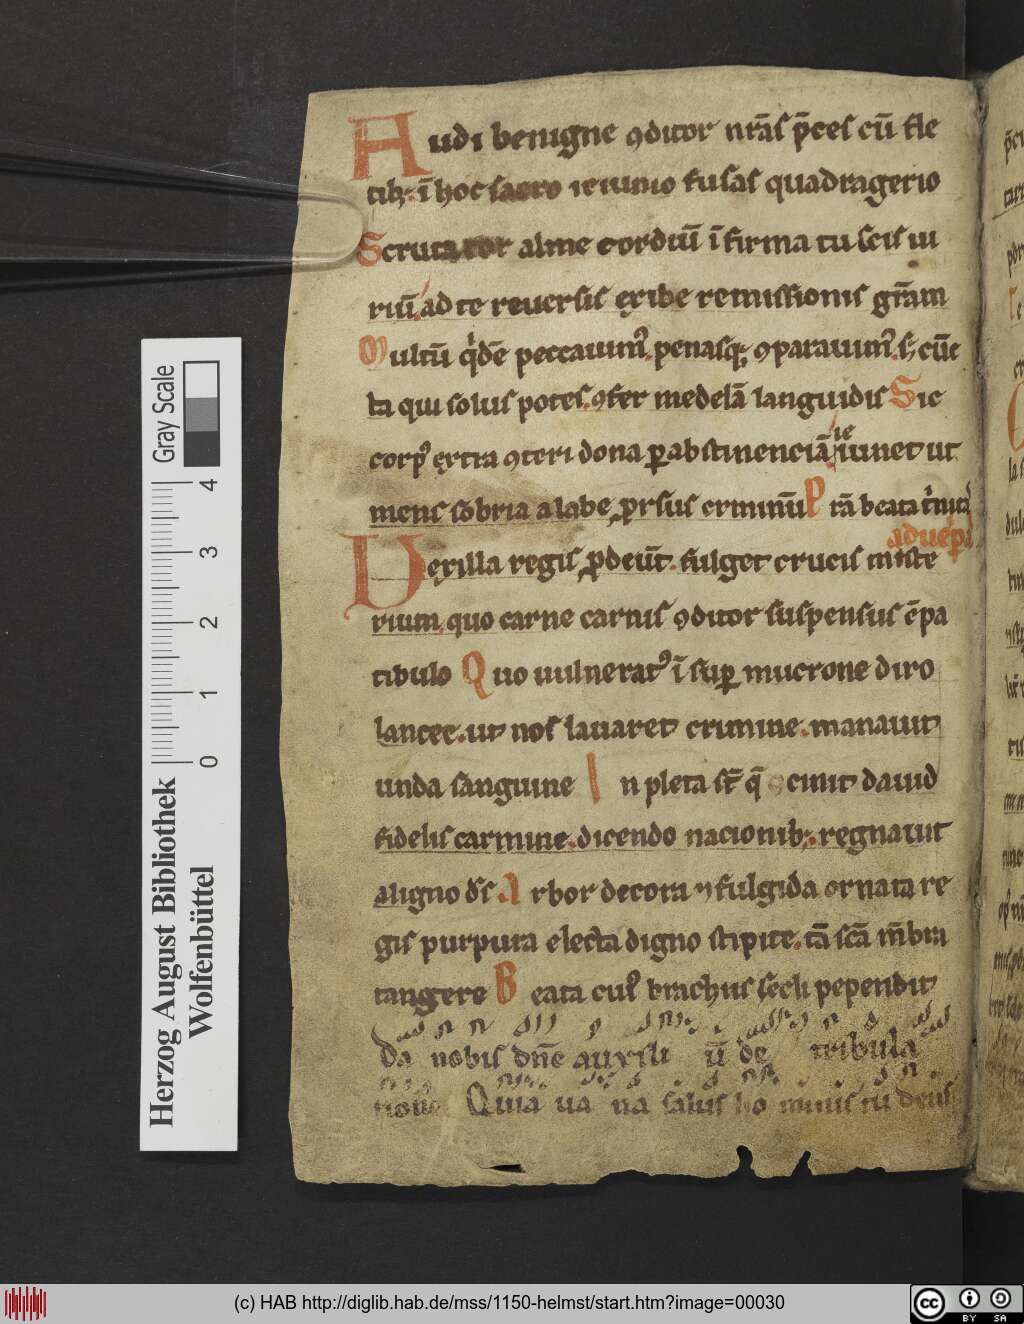 Audi benigne ꝯditor nr̄as p̄ces cū fle
tibꝫ. ī hoc sacro ieiunio fusas quadragerio
Scrutator alme cordiū īfirma tu scis ui
riū. ad te reuersis exibe remissionis gr̄am
Multū qͥdē peccauimꝰ. penasqꝫ ꝯparauimꝰ. sꝫ cūc
ta qui solus potes. ꝯfer medelā languidis Sic
corpꝰ extra ꝯteri dona ꝑ abstinenciā ieiunet ut
mens sobria a labe ꝓrsus criminū P rā beata tͥnitaͣ
ad uesp̄aͣ
Vexilla regis ꝓdeūt. fulget crucis miste
rium. quo carne carnis ꝯditor suspensus ē pa
tibulo Quo uulneratꝰ ī suꝑ mucrone diro
lancee. ut nos lauaret crimine. manauit
unda sanguine In pleta st̄ q̄ cinit dauid
fidelis carmine. dicendo nacionibꝫ. regnauit
a ligno ds̄. Arbor decora ⁊ fulgida ornata re
gis purpura electa digno stipite. tā scā mbra
tangere Beata cuiꝰ brachiis secli pependit
Da nobis dn̄e auxili ū de tribula
tione Quia ua na salus ho minis tu deus
Herzog August Bibliothek
Wolfenbüttel
0 1 2 3 4
Gray Scale
(c) HAB http://diglib.hab.de/mss/1150-helmst/start.htm?image=00030
cc BY SA